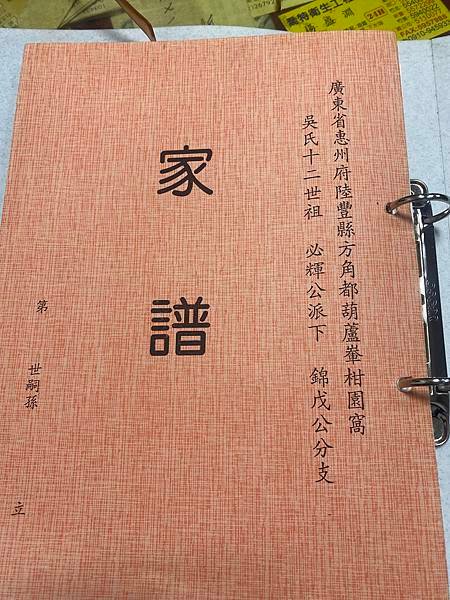 廣東省惠州府陸豐縣方角都葫蘆輋柑園窩
吳氏十二世祖 必輝公派下 錦戊公分支
家譜
第 世嗣孫 立
24H